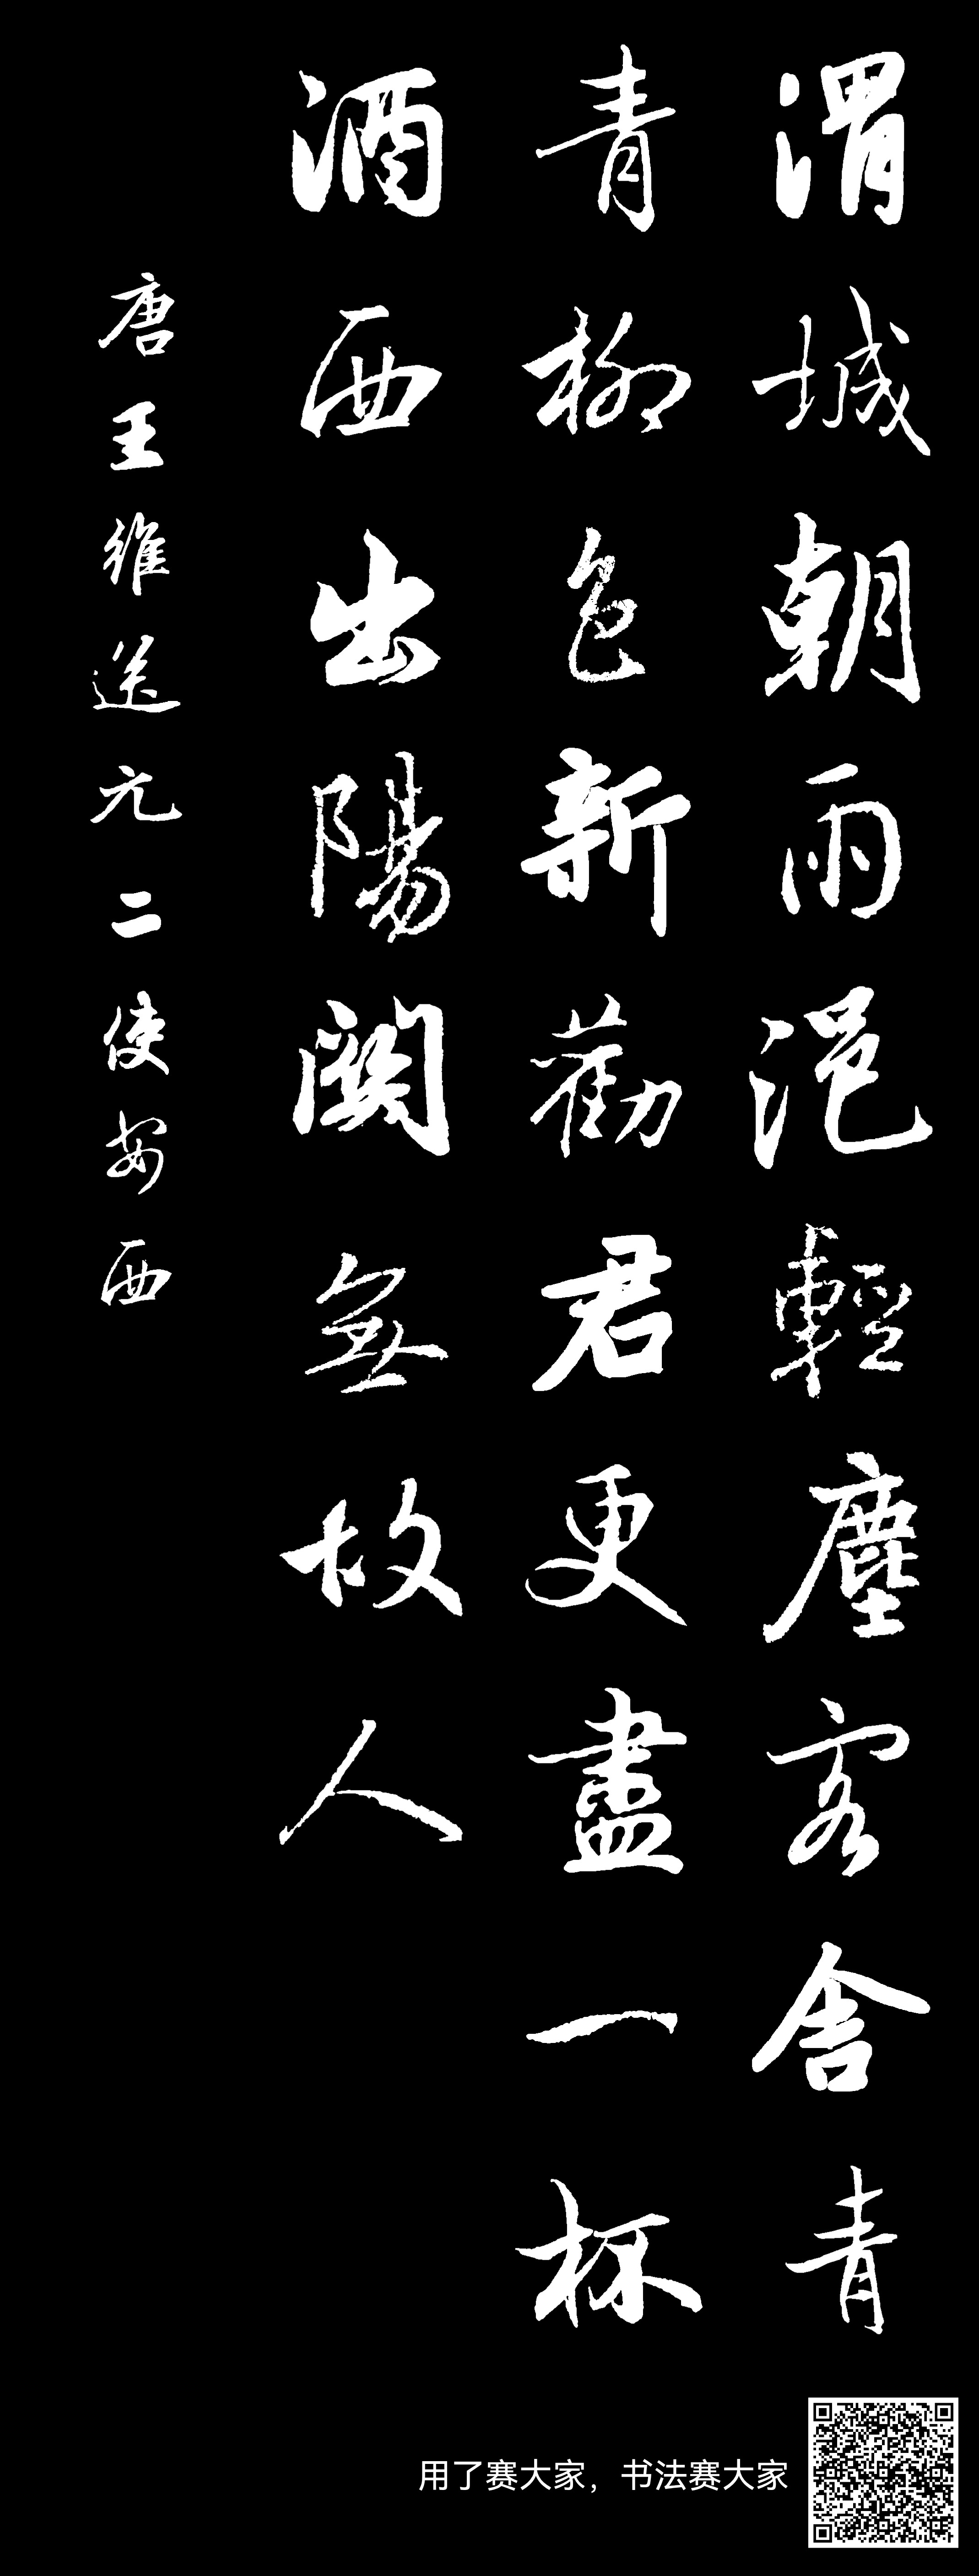 渭城朝雨浥輕塵客舍青
青柳色新勸君更盡一杯
酒西出陽關無故人
唐王維送元二使安西
用了赛大家，书法赛大家